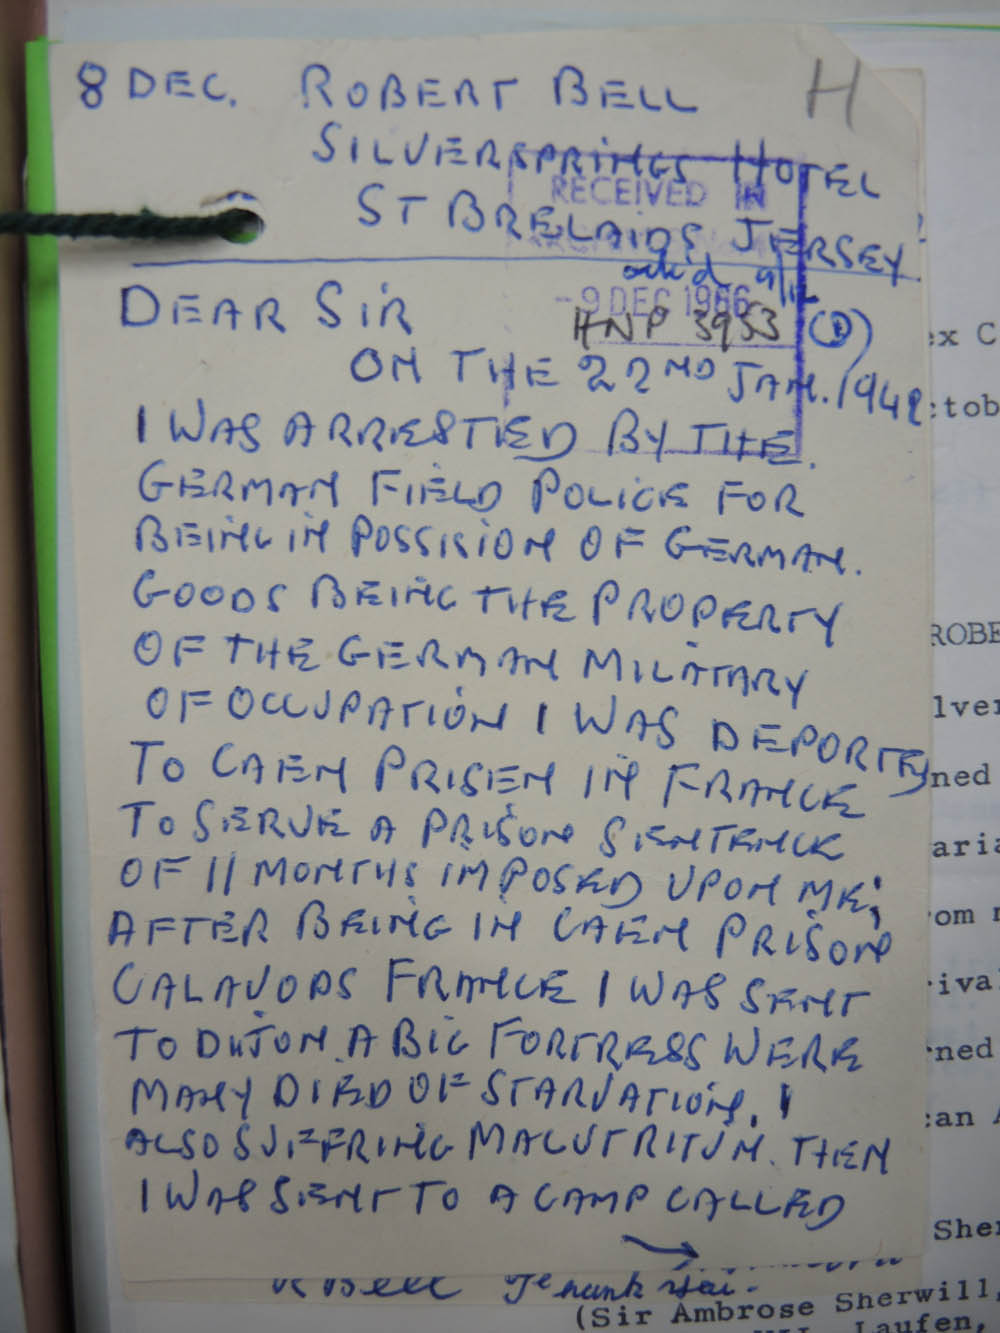 8 DEC. ROBERT BELL
H
SILVERSPRINGS HOTEL
RECEIVED IN
ST BRELAIDS JERSEY
ack'd 9/12
-9 DEC 1966
DEAR SIR
HNP 3953 (1)
ON THE 22ND JAN. 1942
I WAS ARRESTED BY THE.
GERMAN FIELD POLICE FOR
BEING IN POSSISION OF GERMAN.
GOODS BEING THE PROPERTY
OF THE GERMAN MILITARY
OF OCCUPATION I WAS DEPORTED
TO CAEN PRISEN IN FRANCE
TO SERVE A PRISON SENTENCE
OF 11 MONTHS IMPOSED UPON ME;
AFTER BEING IN CAEN PRISON
CALAVODS FRANCE I WAS SENT
TO DIJON. A BIG FORTRESS WERE
MANY DIED OF STARVATION. I
ALSO SUFFRING MALUTRITUN. THEN
I WAS SENT TO A CAMP CALLED
→
R Bell
(Sir Ambrose Sherwill,
Laufen,
ex C
ctob
ROBE
lver
ned
aria
om
riva
rned
can A
Sher